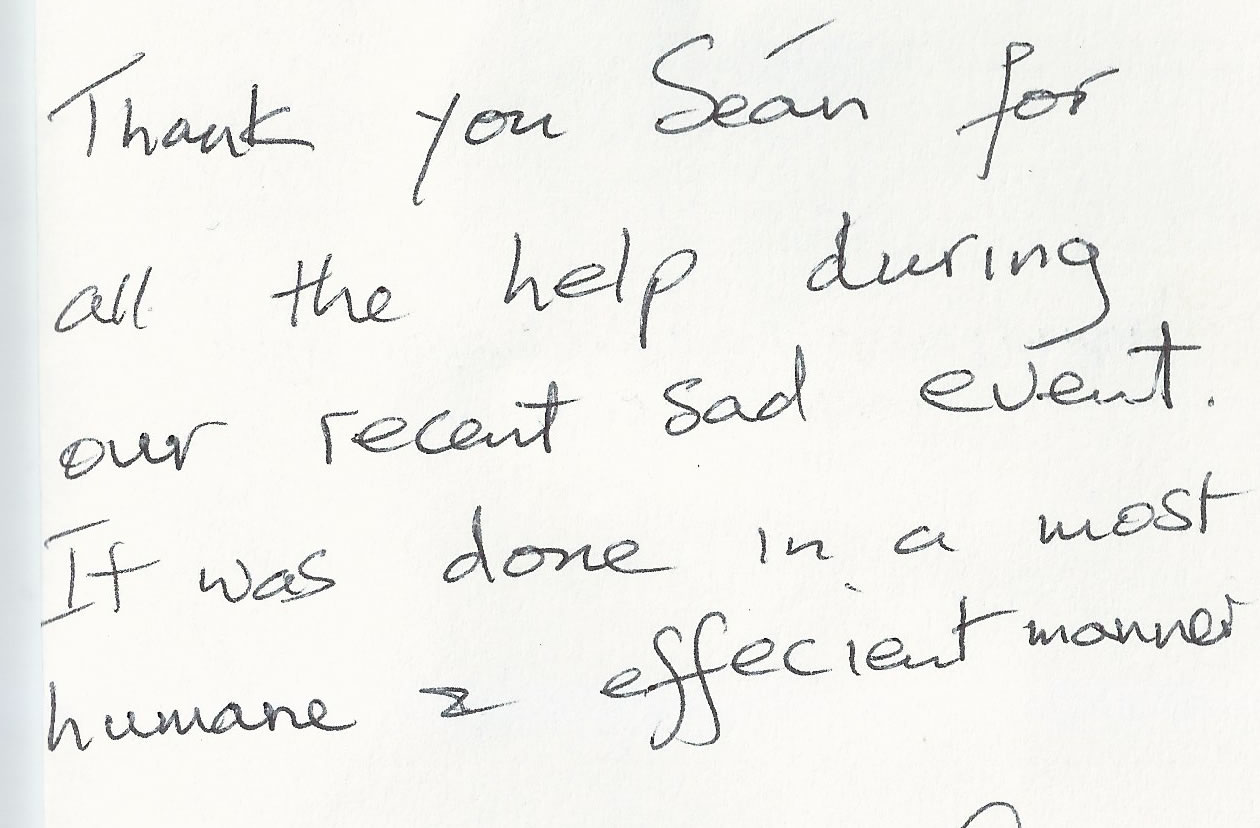 Thank you Seán for
all the help during
our recent sad event.
It was done in a most
humane & effecient manner